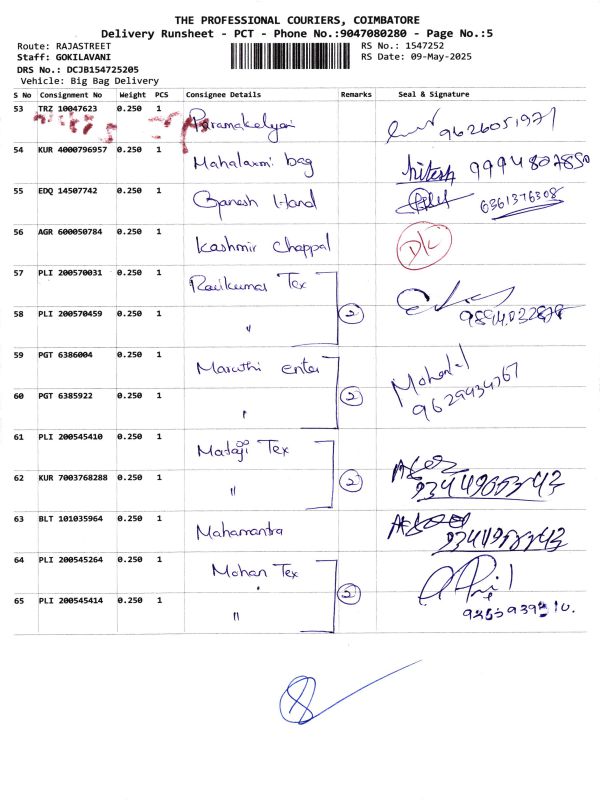 THE PROFESSIONAL COURIERS, COIMBATORE
Delivery Runsheet - PCT - Phone No.:9047080280 - Page No.:5
Route: RAJASTREET
Staff: GOKILAVANI
DRS No.: DCJB154725205
Vehicle: Big Bag Delivery
RS No.: 1547252
RS Date: 09-May-2025
S No Consignment No Weight PCS Consignee Details Remarks Seal & Signature
53 TRZ 10047623 0.250 1 Paramakalyani 9626051971
54 KUR 4000796957 0.250 1 Mahalaxmi bag hitesh 9994807850
55 EDQ 14507742 0.250 1 Ganesh Hand 6361376308
56 AGR 600050784 0.250 1 Kashmir Chappal D/L
57 PLI 200570031 0.250 1 Ravikumar Tex
58 PLI 200570459 0.250 1 〃 2 9894032878
59 PGT 6386004 0.250 1 Maruthi enter
60 PGT 6385922 0.250 1 〃 2 9629934767
61 PLI 200545410 0.250 1 Mataji Tex
62 KUR 7003768288 0.250 1 〃 2
63 BLT 101035964 0.250 1 Mahamantra
64 PLI 200545264 0.250 1 Mohan Tex
65 PLI 200545414 0.250 1 〃 2